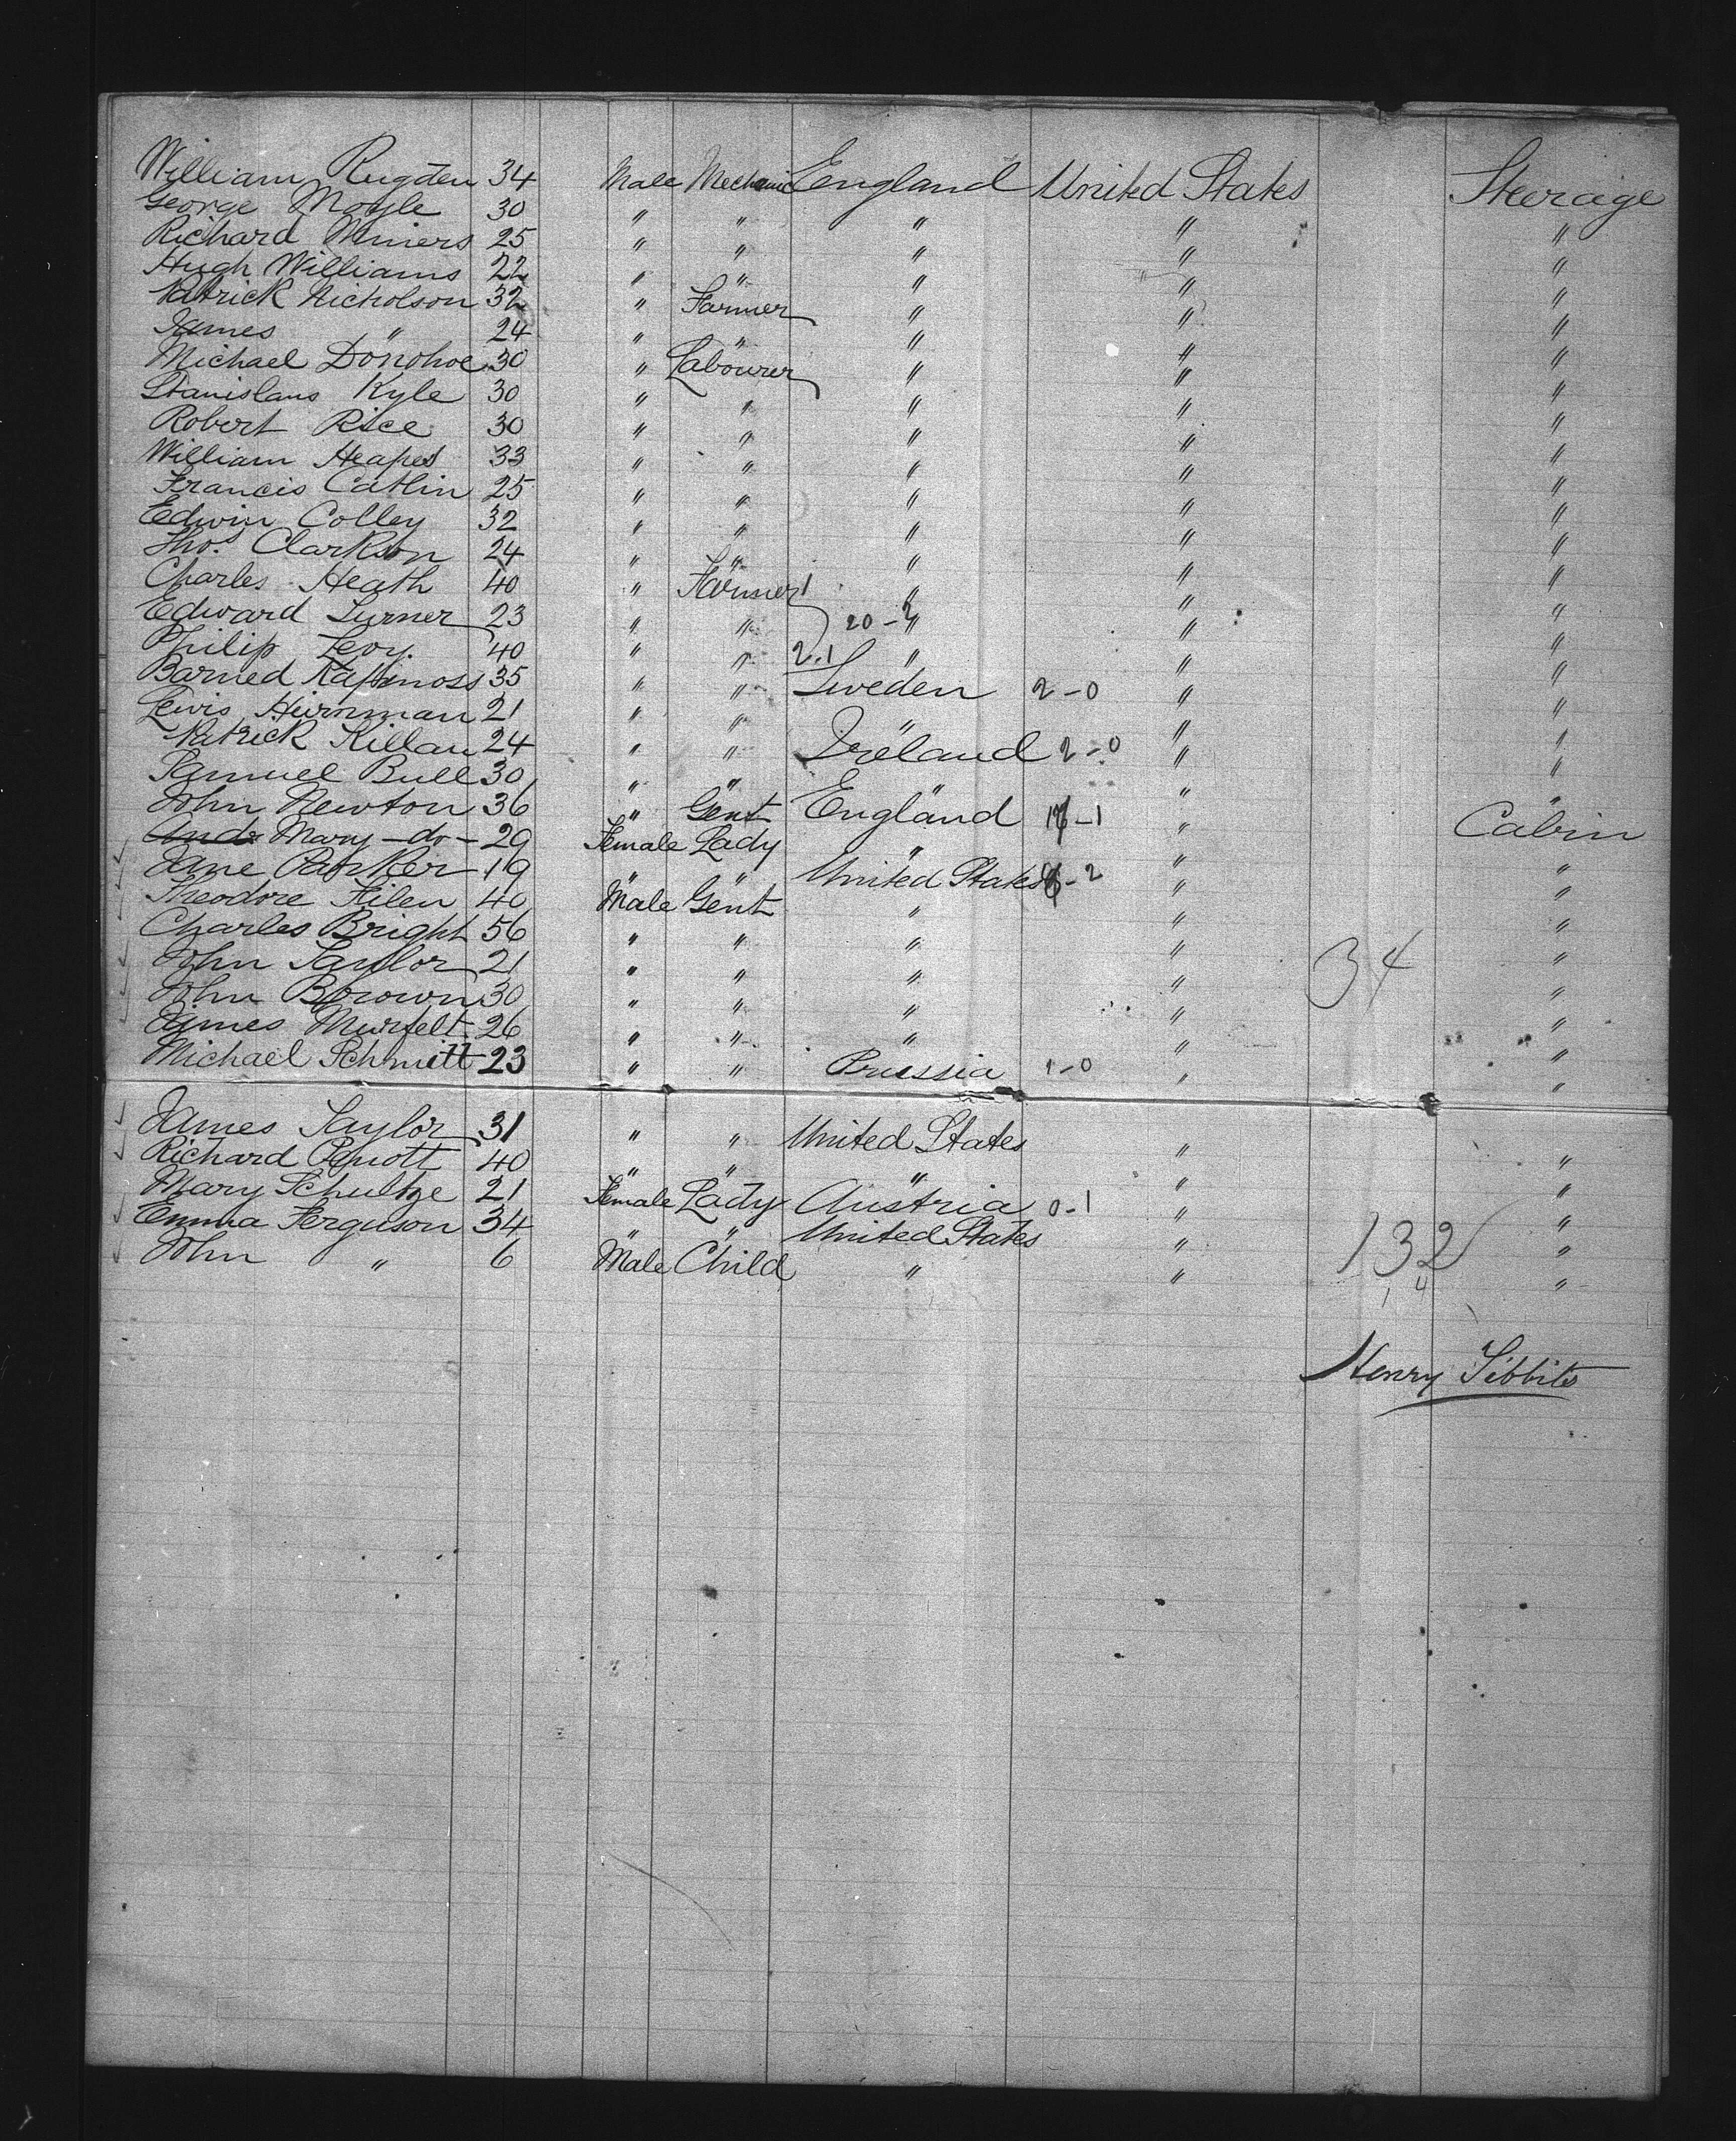 William Rugden 34 Male Mechanic England United States Steerage
George Moyle 30 " " " " "
Richard Miners 25 " " " " "
Hugh Williams 22 " " " " "
Patrick Nicholson 32 " Farmer " " "
James " 24 " " " " "
Michael Donohoe 30 " Labourer " " "
Stanislaus Kyle 30 " " " " "
Robert Rice 30 " " " " "
William Heapes 33 " " " " "
Francis Catlin 25 " " " " "
Edwin Colley 32 " " " " "
Thos. Clarkson 24 " " " " "
Charles Heath 40 " Farmer " " "
Edward Turner 23 " " 20 - " " "
Philip Levy 40 " " 2.1 " " "
Barned 35 " " Sweden 2-0 " "
Lewis Hirnman 21 " " " " "
Patrick Killan 24 " " Ireland 2-0 " "
Samuel Bull 30 " " " " "
John Newton 36 " Gent England -1 " Cabin
And Mary -do- 29 Female Lady " " "
Jane Parker 19 " " United States -2 " "
Theodore Filen 40 Male Gent " " "
Charles Bright 56 " " " " "
John Taylor 21 " " " " 34 "
John Brown 30 " " " " "
James Murfelt 26 " " " " "
Michael Schmitt 23 " " Prussia 1-0 " "
James Taylor 31 " " United States " "
Richard 40 " " " " "
Mary Schultze 21 Female Lady Austria 0-1 " "
Emma Ferguson 34 " " United States " 132 "
John " 6 Male Child " " "
1 4
Henry Tibbits